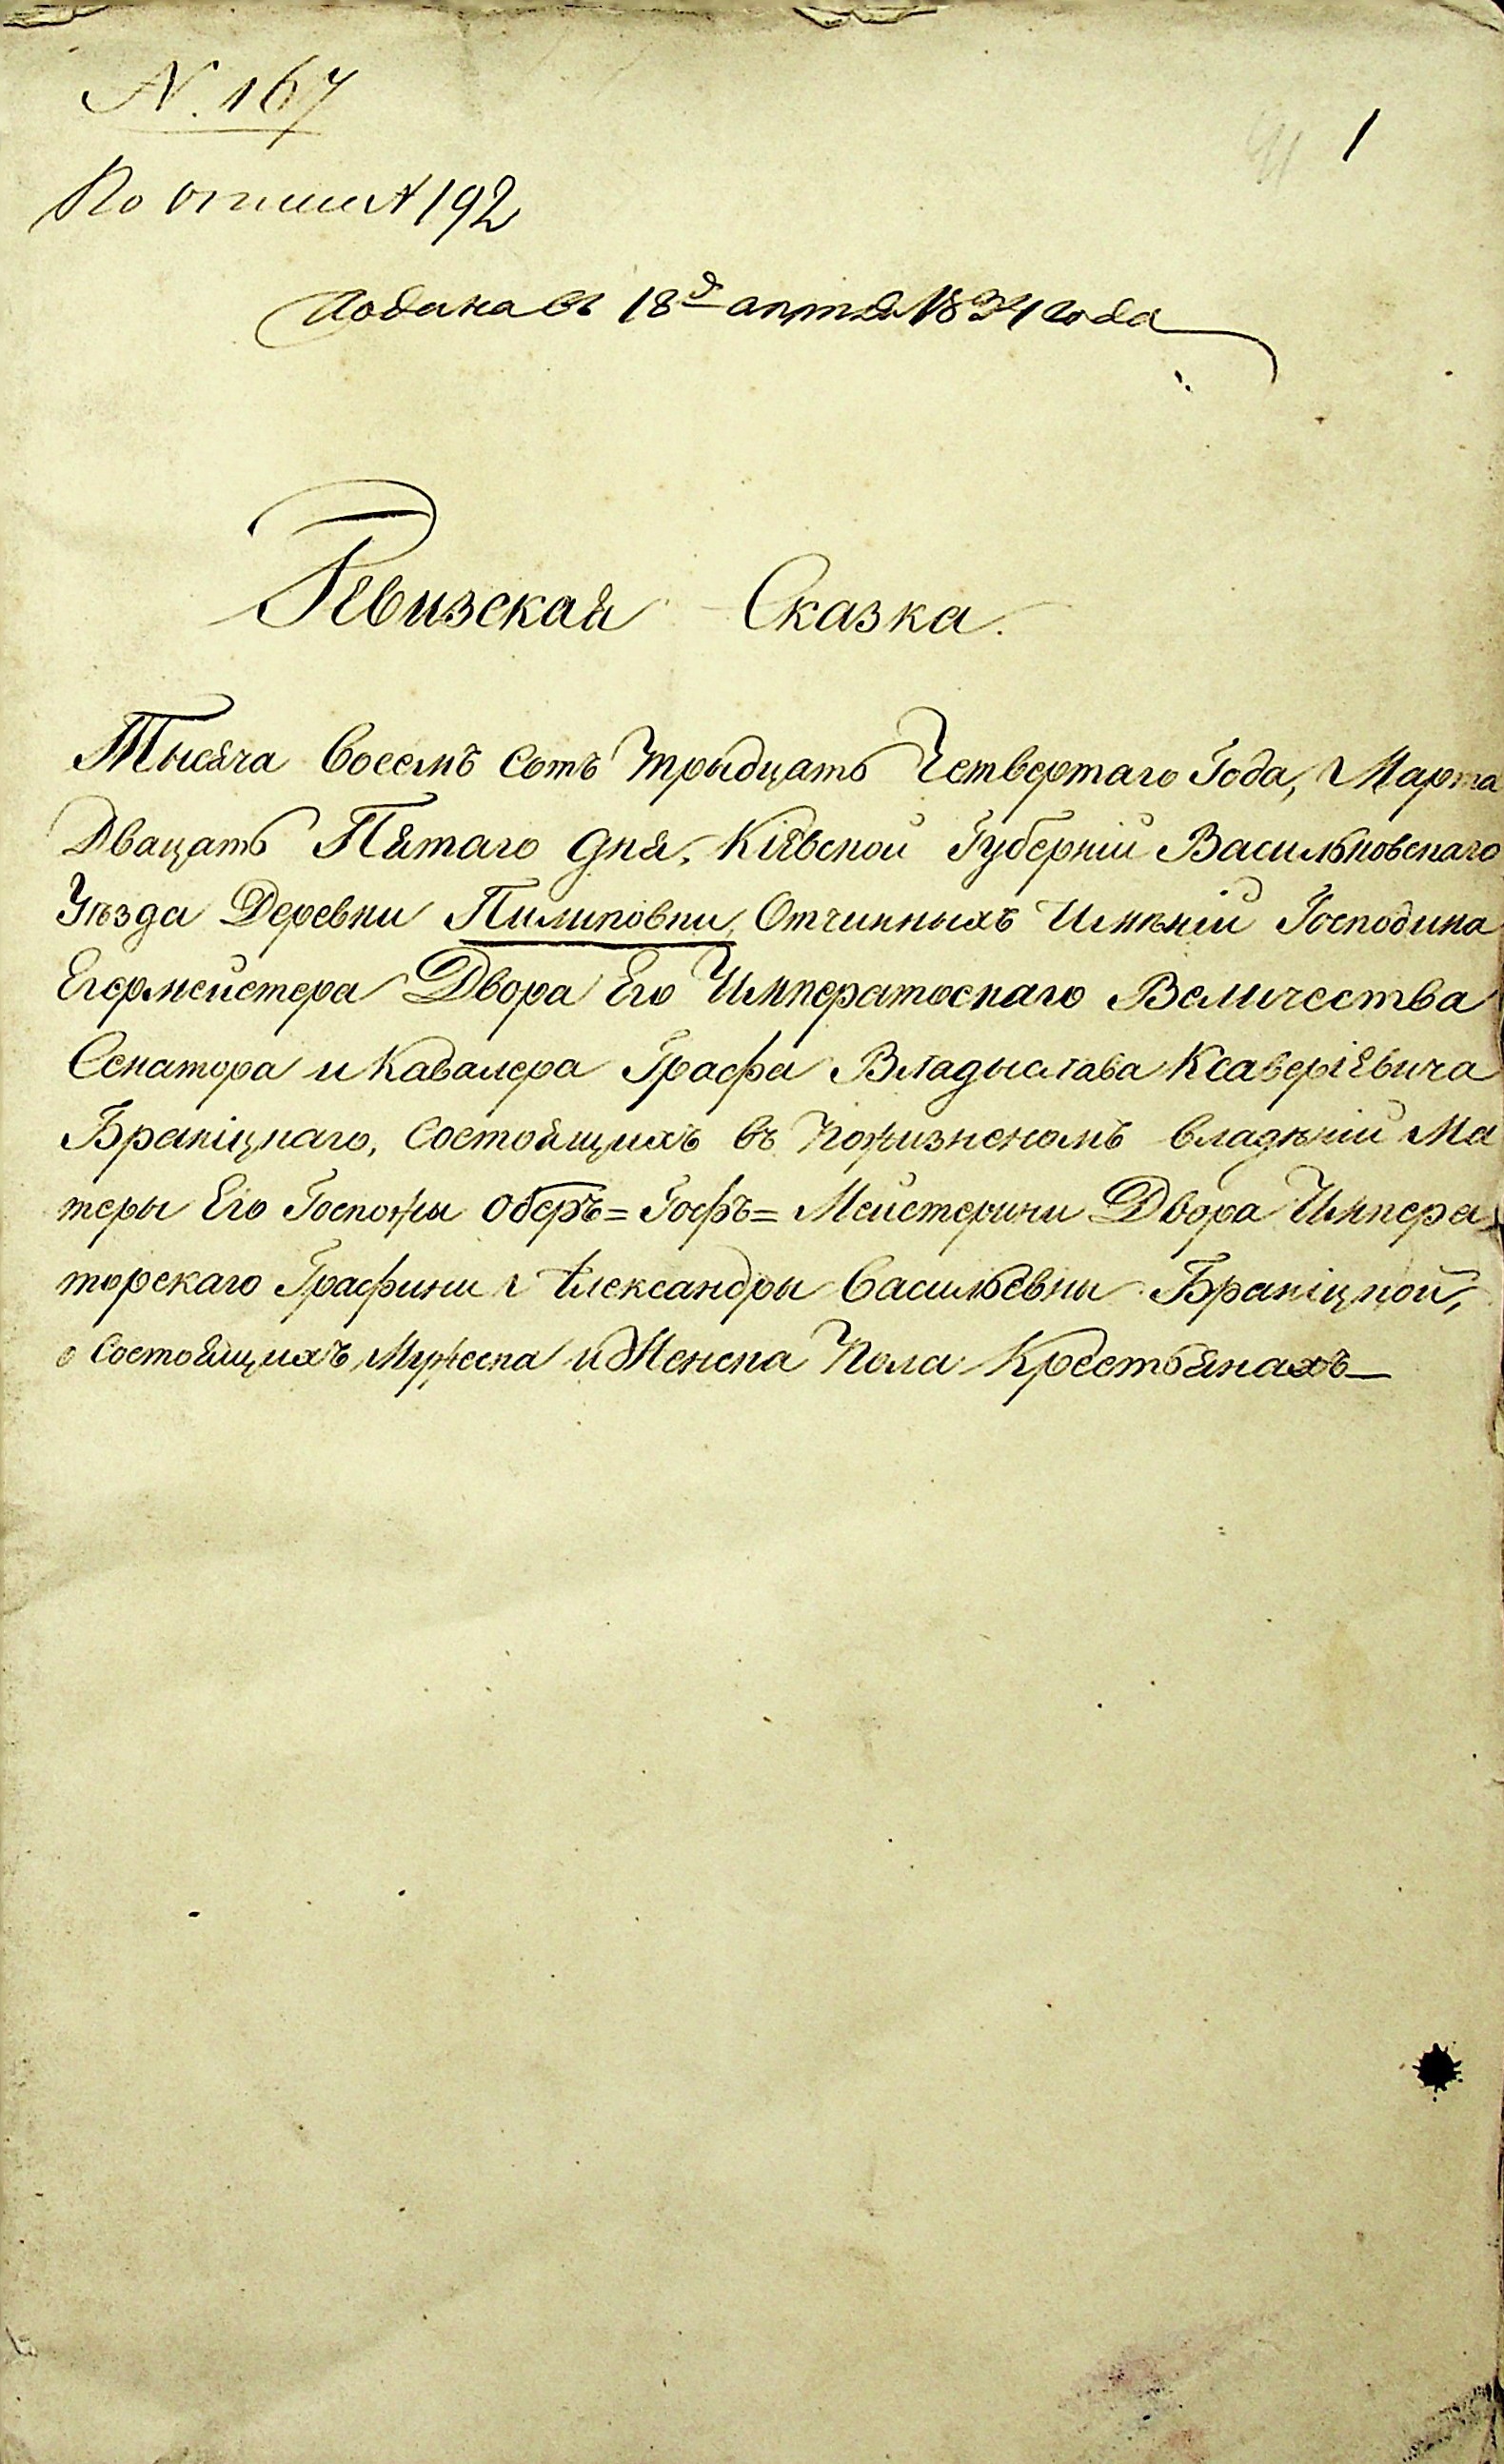 N. 167
1
По описи № 192
Подана въ 18 д апреля 1834 года
Ревизская Сказка.
Тысяча восемъ сотъ трыдцать Четвертаго Года, Марта
Двацать Пятаго дня, Кіевской Губерніи Васильковскаго
Уѣзда Деревни Пилиповки, Отчинныхъ Имѣній Господина
Егермейстера Двора Его Императоскаго Величества
Сенатора и Кавалера Графа Владыслава Ксаверіевича
Браницкаго, состоящихъ въ пожизненомъ владѣніи Ма
теры Его Госпожы Оберъ=Гофъ=Мейстерини Двора Импера
торскаго Графини Александры Васильевны Браницкой,
о состоящихъ Мужеска и Женска Пола Крестьянахъ